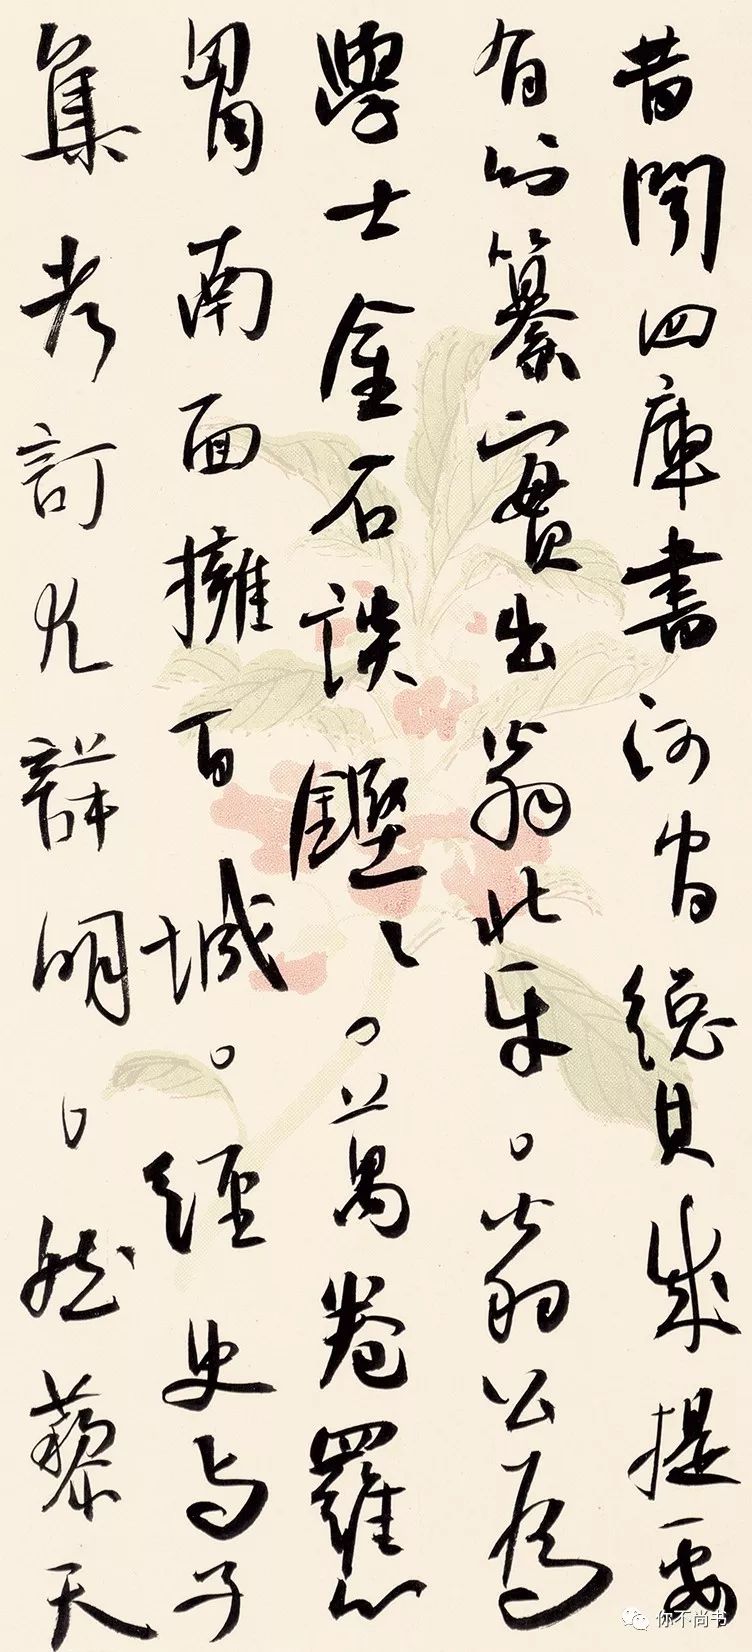 昔聞四庫書河間總其成提要
有分纂實出翁北平。翁公為
學士金石談鏗々。萬卷羅心
胃南面擁百城。經史与子
集考訂尤詳明。然藜天
你不尚书